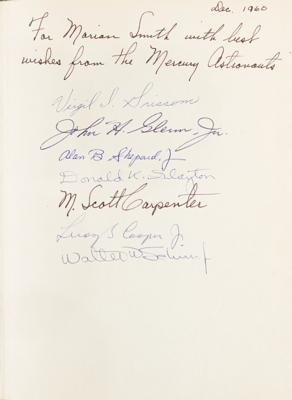 Dec. 1960
For Marian Smith with best
wishes from the Mercury Astronauts
Virgil I. Grissom
John H. Glenn, Jr.
Alan B. Shepard, Jr
Donald K. Slayton
M. Scott Carpenter
Leroy G Cooper Jr
Walter M Schirra Jr